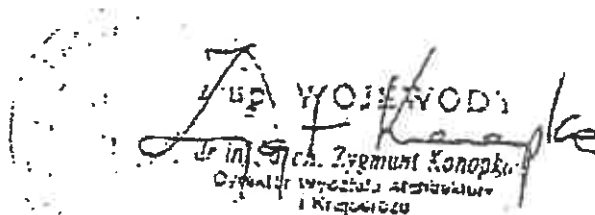 WOJEWODY
dr inż. arch. Zygmunt Konopka
Dyrektor Wydziału Architektury
i Krajobrazu